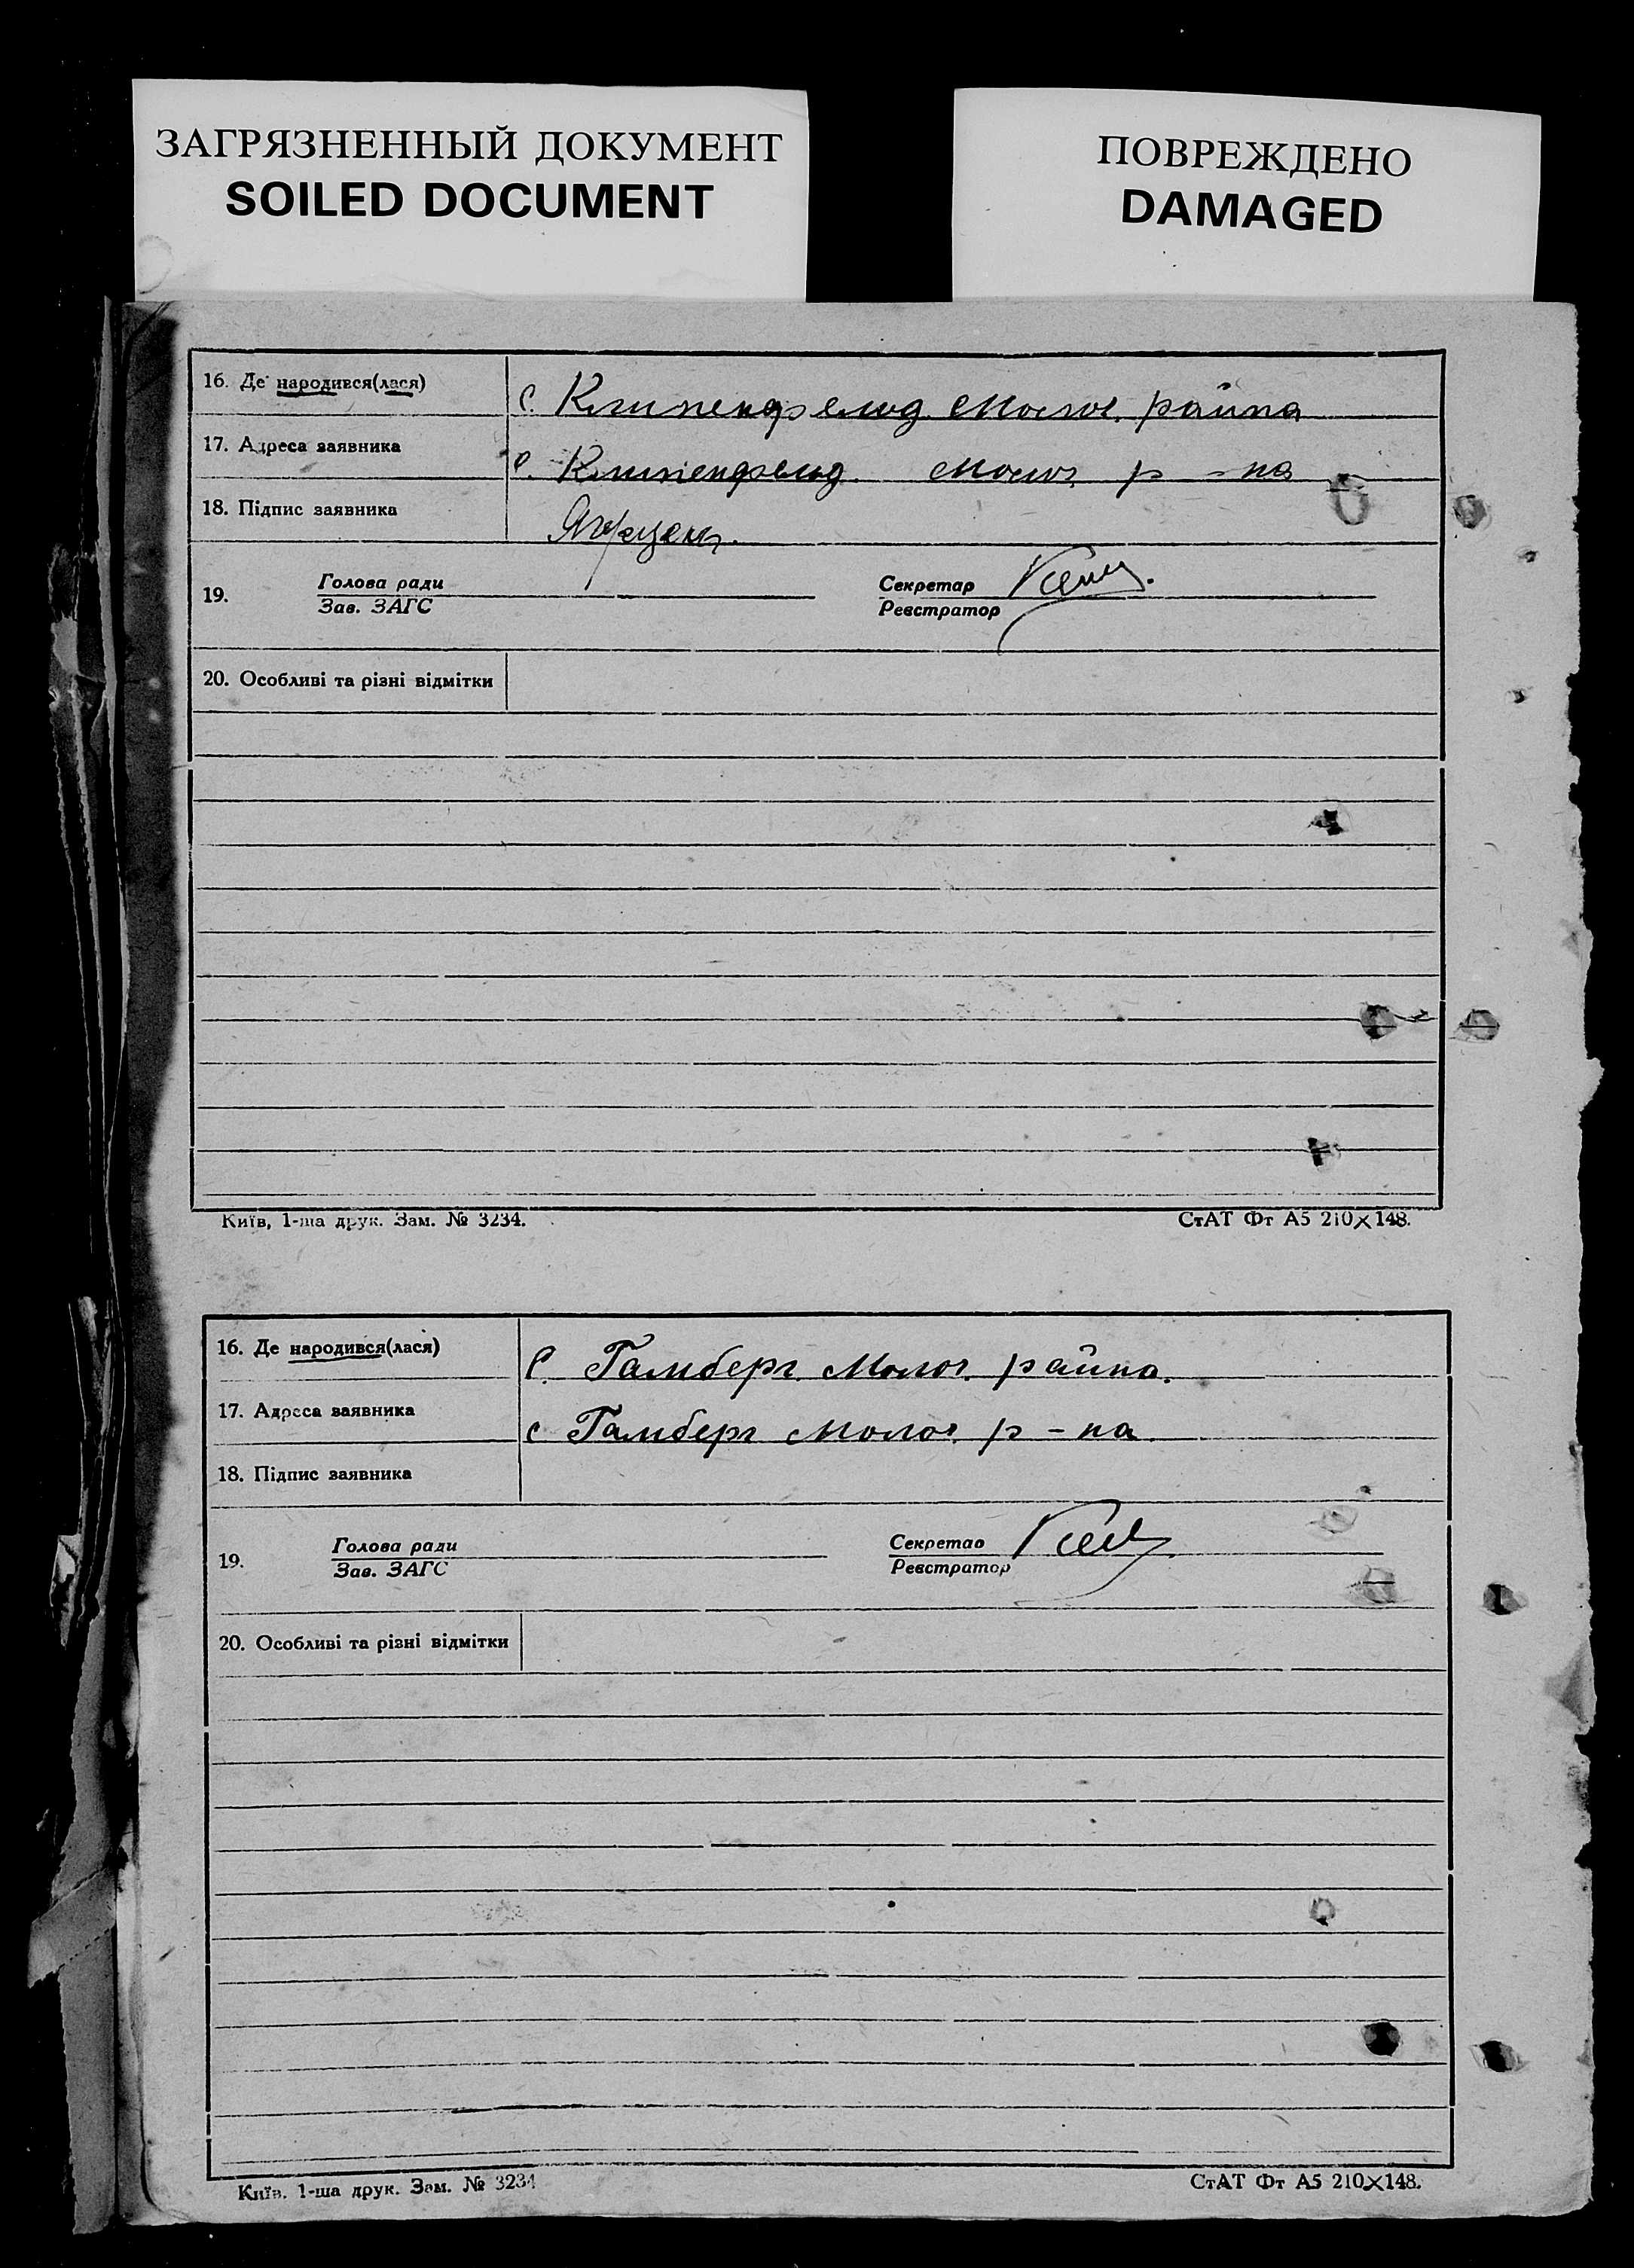 ЗАГРЯЗНЕННЫЙ ДОКУМЕНТ
SOILED DOCUMENT
ПОВРЕЖДЕНО
DAMAGED
16. Де народився(лася)
с. Клипенфельд Молоч. район
17. Адреса заявника
с. Клипенфельд Молоч р-на
18. Підпис заявника
19. Голова ради
Зав. ЗАГС
Секретар
Реєстратор
20. Особливі та різні відмітки
Київ, 1-ша друк. Зам. № 3234.
СтАТ Фт А5 210×148.
16. Де народився(лася)
с. Гамберг Молоч. района.
17. Адреса заявника
с Гамберг Молоч. р-на
18. Підпис заявника
19. Голова ради
Зав. ЗАГС
Секретар
Реєстратор
20. Особливі та різні відмітки
Київ. 1-ша друк. Зам. № 3234
СтАТ Фт А5 210×148.